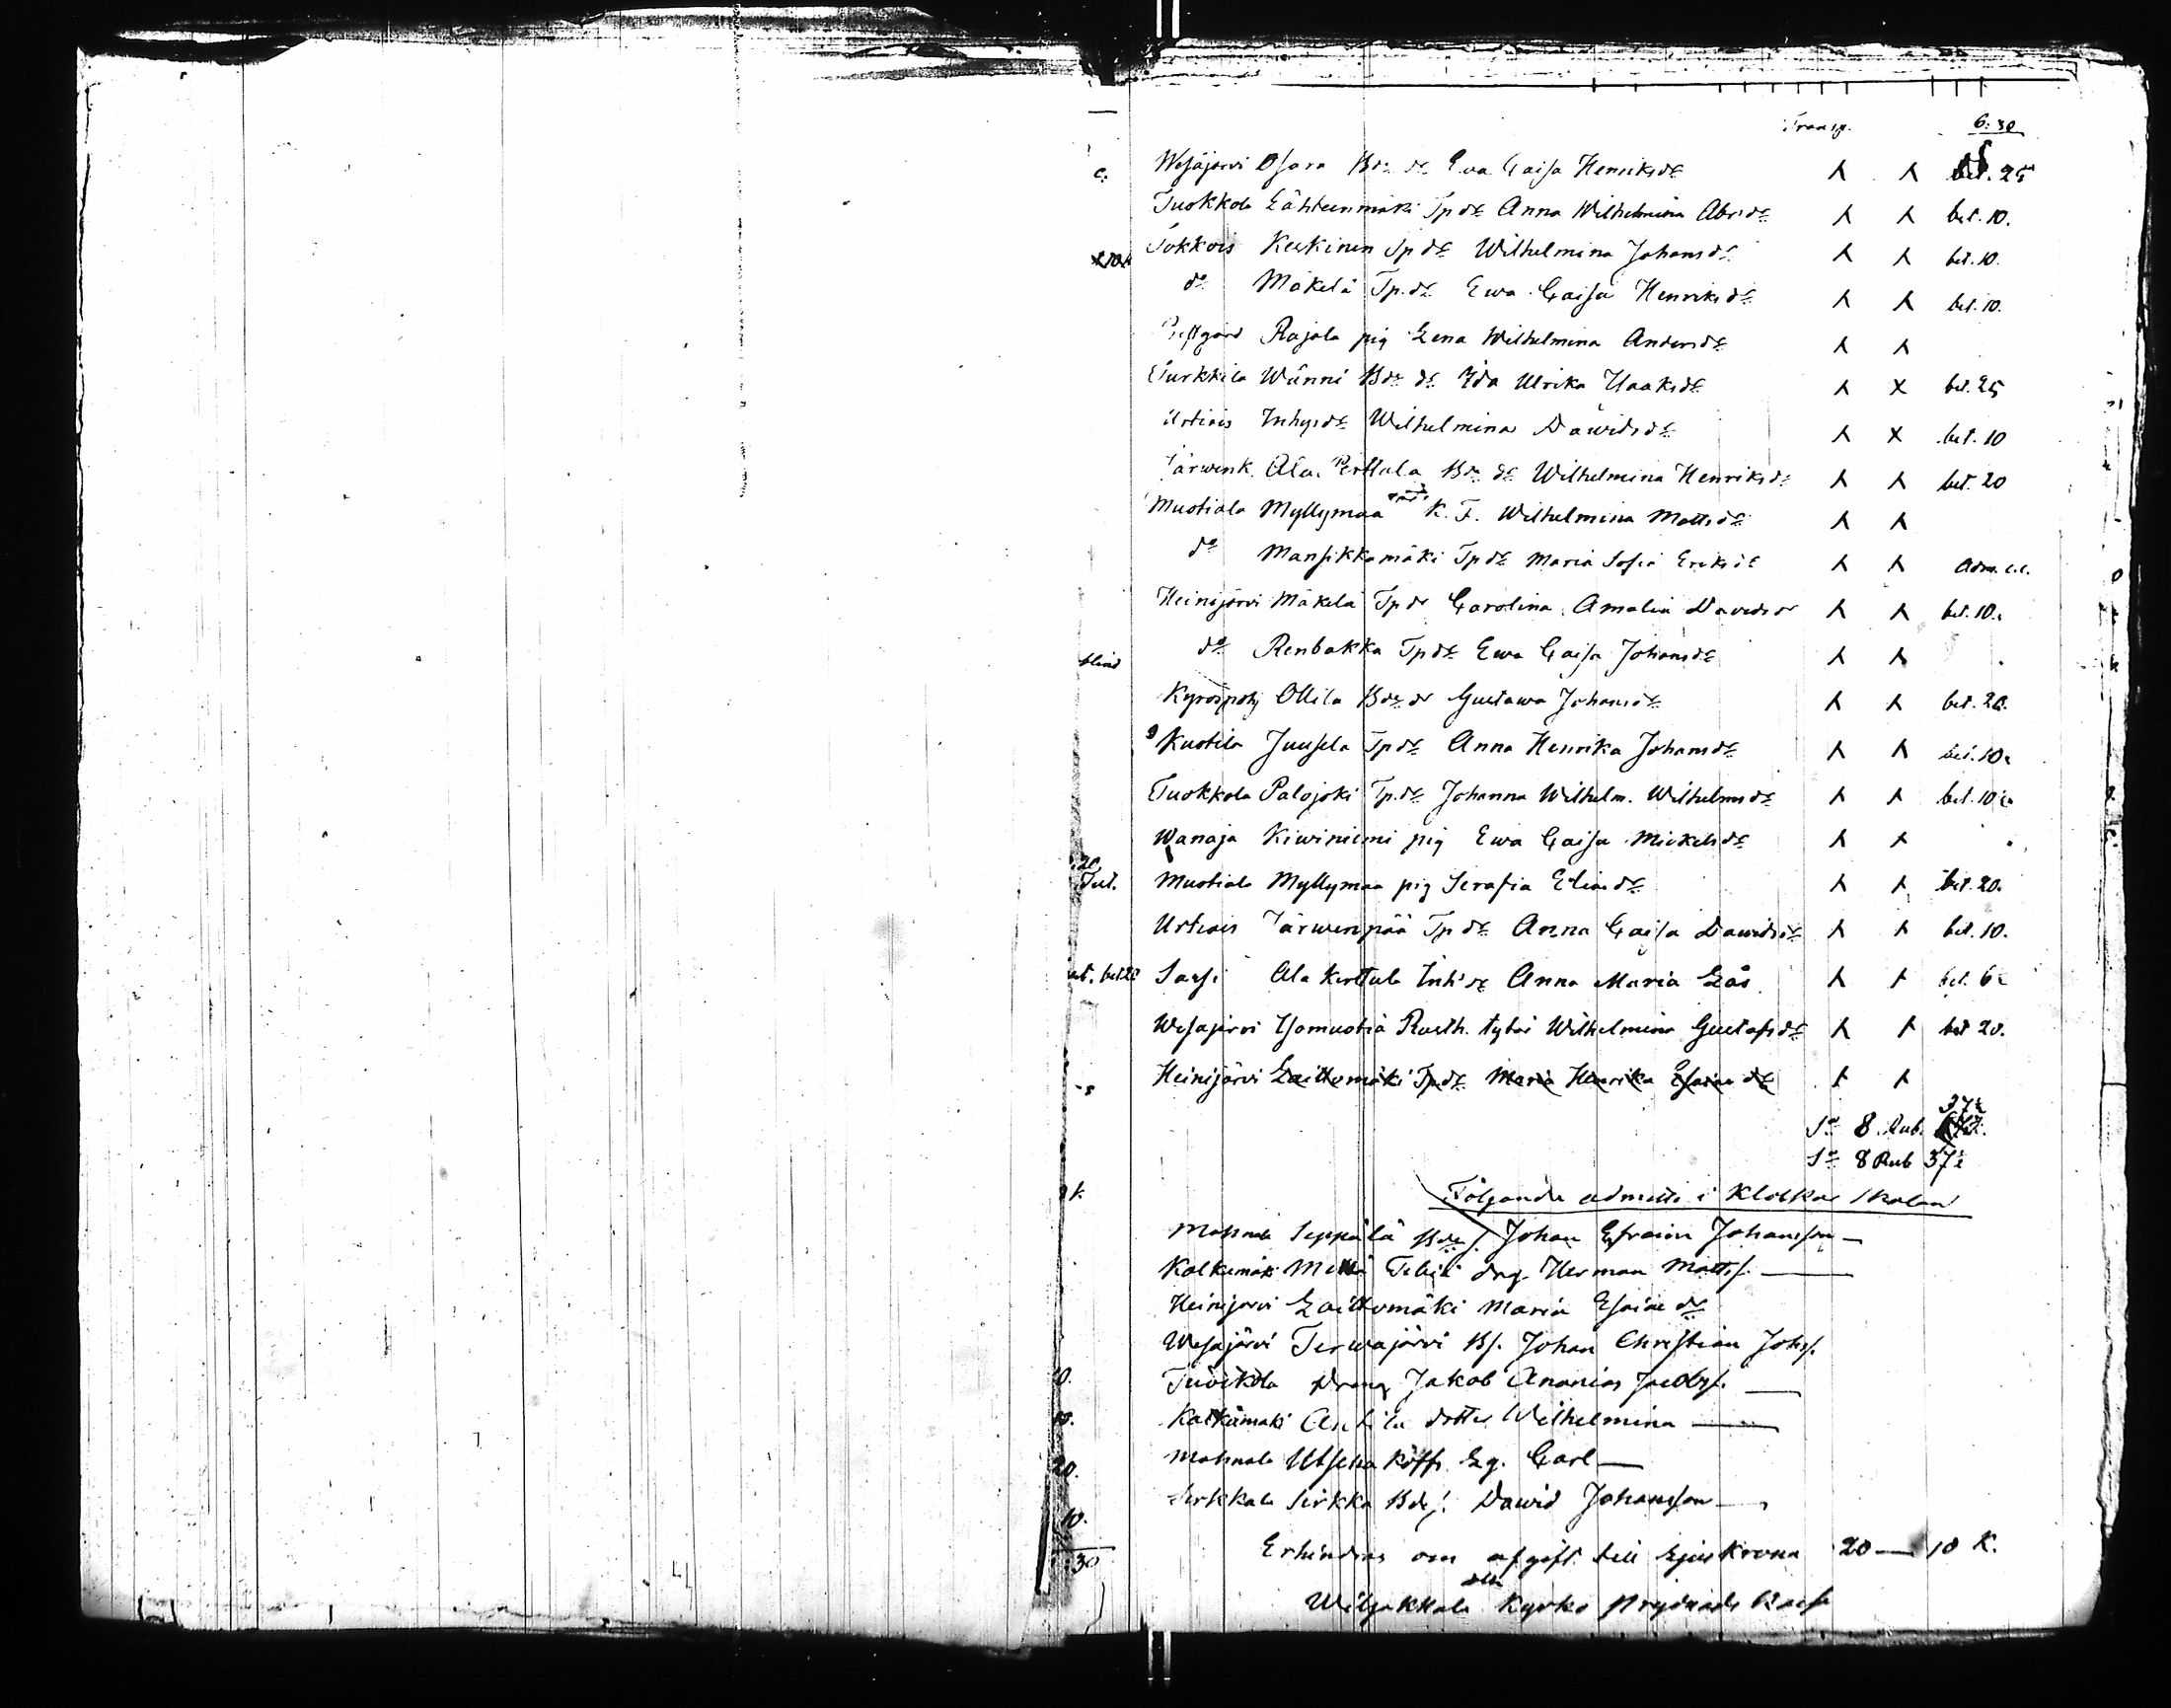 Transp. 6: 30
Wesajärvi Osara Bde dr Ewa Caisa Henriksdr bet. 25
Tuokkola Lähteenmäki Tp dr Anna Wilhelmina Abr:dr bet. 10.
Tokkois Keskinen Tp dr Wilhelmina Johansdr bet. 10.
do Mäkelä Tp. dr Ewa Caisa Henriksdr bet. 10.
Rajala pig Lena Wilhelmina Andersdr
Turkkila Wänni Bde dr Ida Ulrika Isaksdr bet. 25
Urtiais Inhysdr Wilhelmina Dawidsdr bet. 10
Järwenk. Ala Perttala Bde dr Wilhelmina Henriksdr bet. 20
Muotiala Myllymaa K. F. Wilhelmina Mattsdr
do Mansikkamäki Tp dr Maria Sofia Eriksdr Adm.
Heinijärvi Mäkelä Tp dr Carolina Amalia Davidsdr bet. 10.
blind do Renbakka Tp dr Ewa Caisa Johansdr
Kyröspohj Ollila Bde dr Gustawa Johansdr bet. 20.
Kuotila Juusela Tp dr Anna Henrika Johansdr bet. 10.
Tuokkola Palojoki Tp. dr Johanna Wilhelm. Wilhelmsdr bet. 10
Wanaja Kiwiniemi pig Ewa Caisa Mickelsdr
Muotiala Myllymaa pig Serafia Eliaedr bet. 20.
Urtiais Järwenpää Tp dr Anna Caisa Dawidsdr bet. 10.
Sarsi Ala Kerttula Inh dr Anna Maria Lås bet. 6
Wesajärvi Isomuotia Rusth. Wilhelmina Gustafsdr bet 20.
Heinijärvi Laittomäki Tp dr Maria Henrika Esaiae dr
37½
Sa 8 Rub.
Sa 8 Rub 37½
Följande admitt: i Klockar skolan
Mahnala Seppälä Bde s. Johan Efraim Johansson —
Kalkimäki drg. Herman Matts. —
Heinijärvi Laittomäki Maria Esaiae dr
Wesajärvi Terwajärvi Bs. Johan Christian Johs.
10. Dräng Jakob Ananias Jacobs. —
10. Anttila dotter Wilhelmina —
20. Mahnala Carl —
Sirkkala Sirkka Bde s. Dawid Johansson —
10.
30
Erhindras om afgift till Ljuskrona 20 — 10 K.
Wiljakkala Kyrko